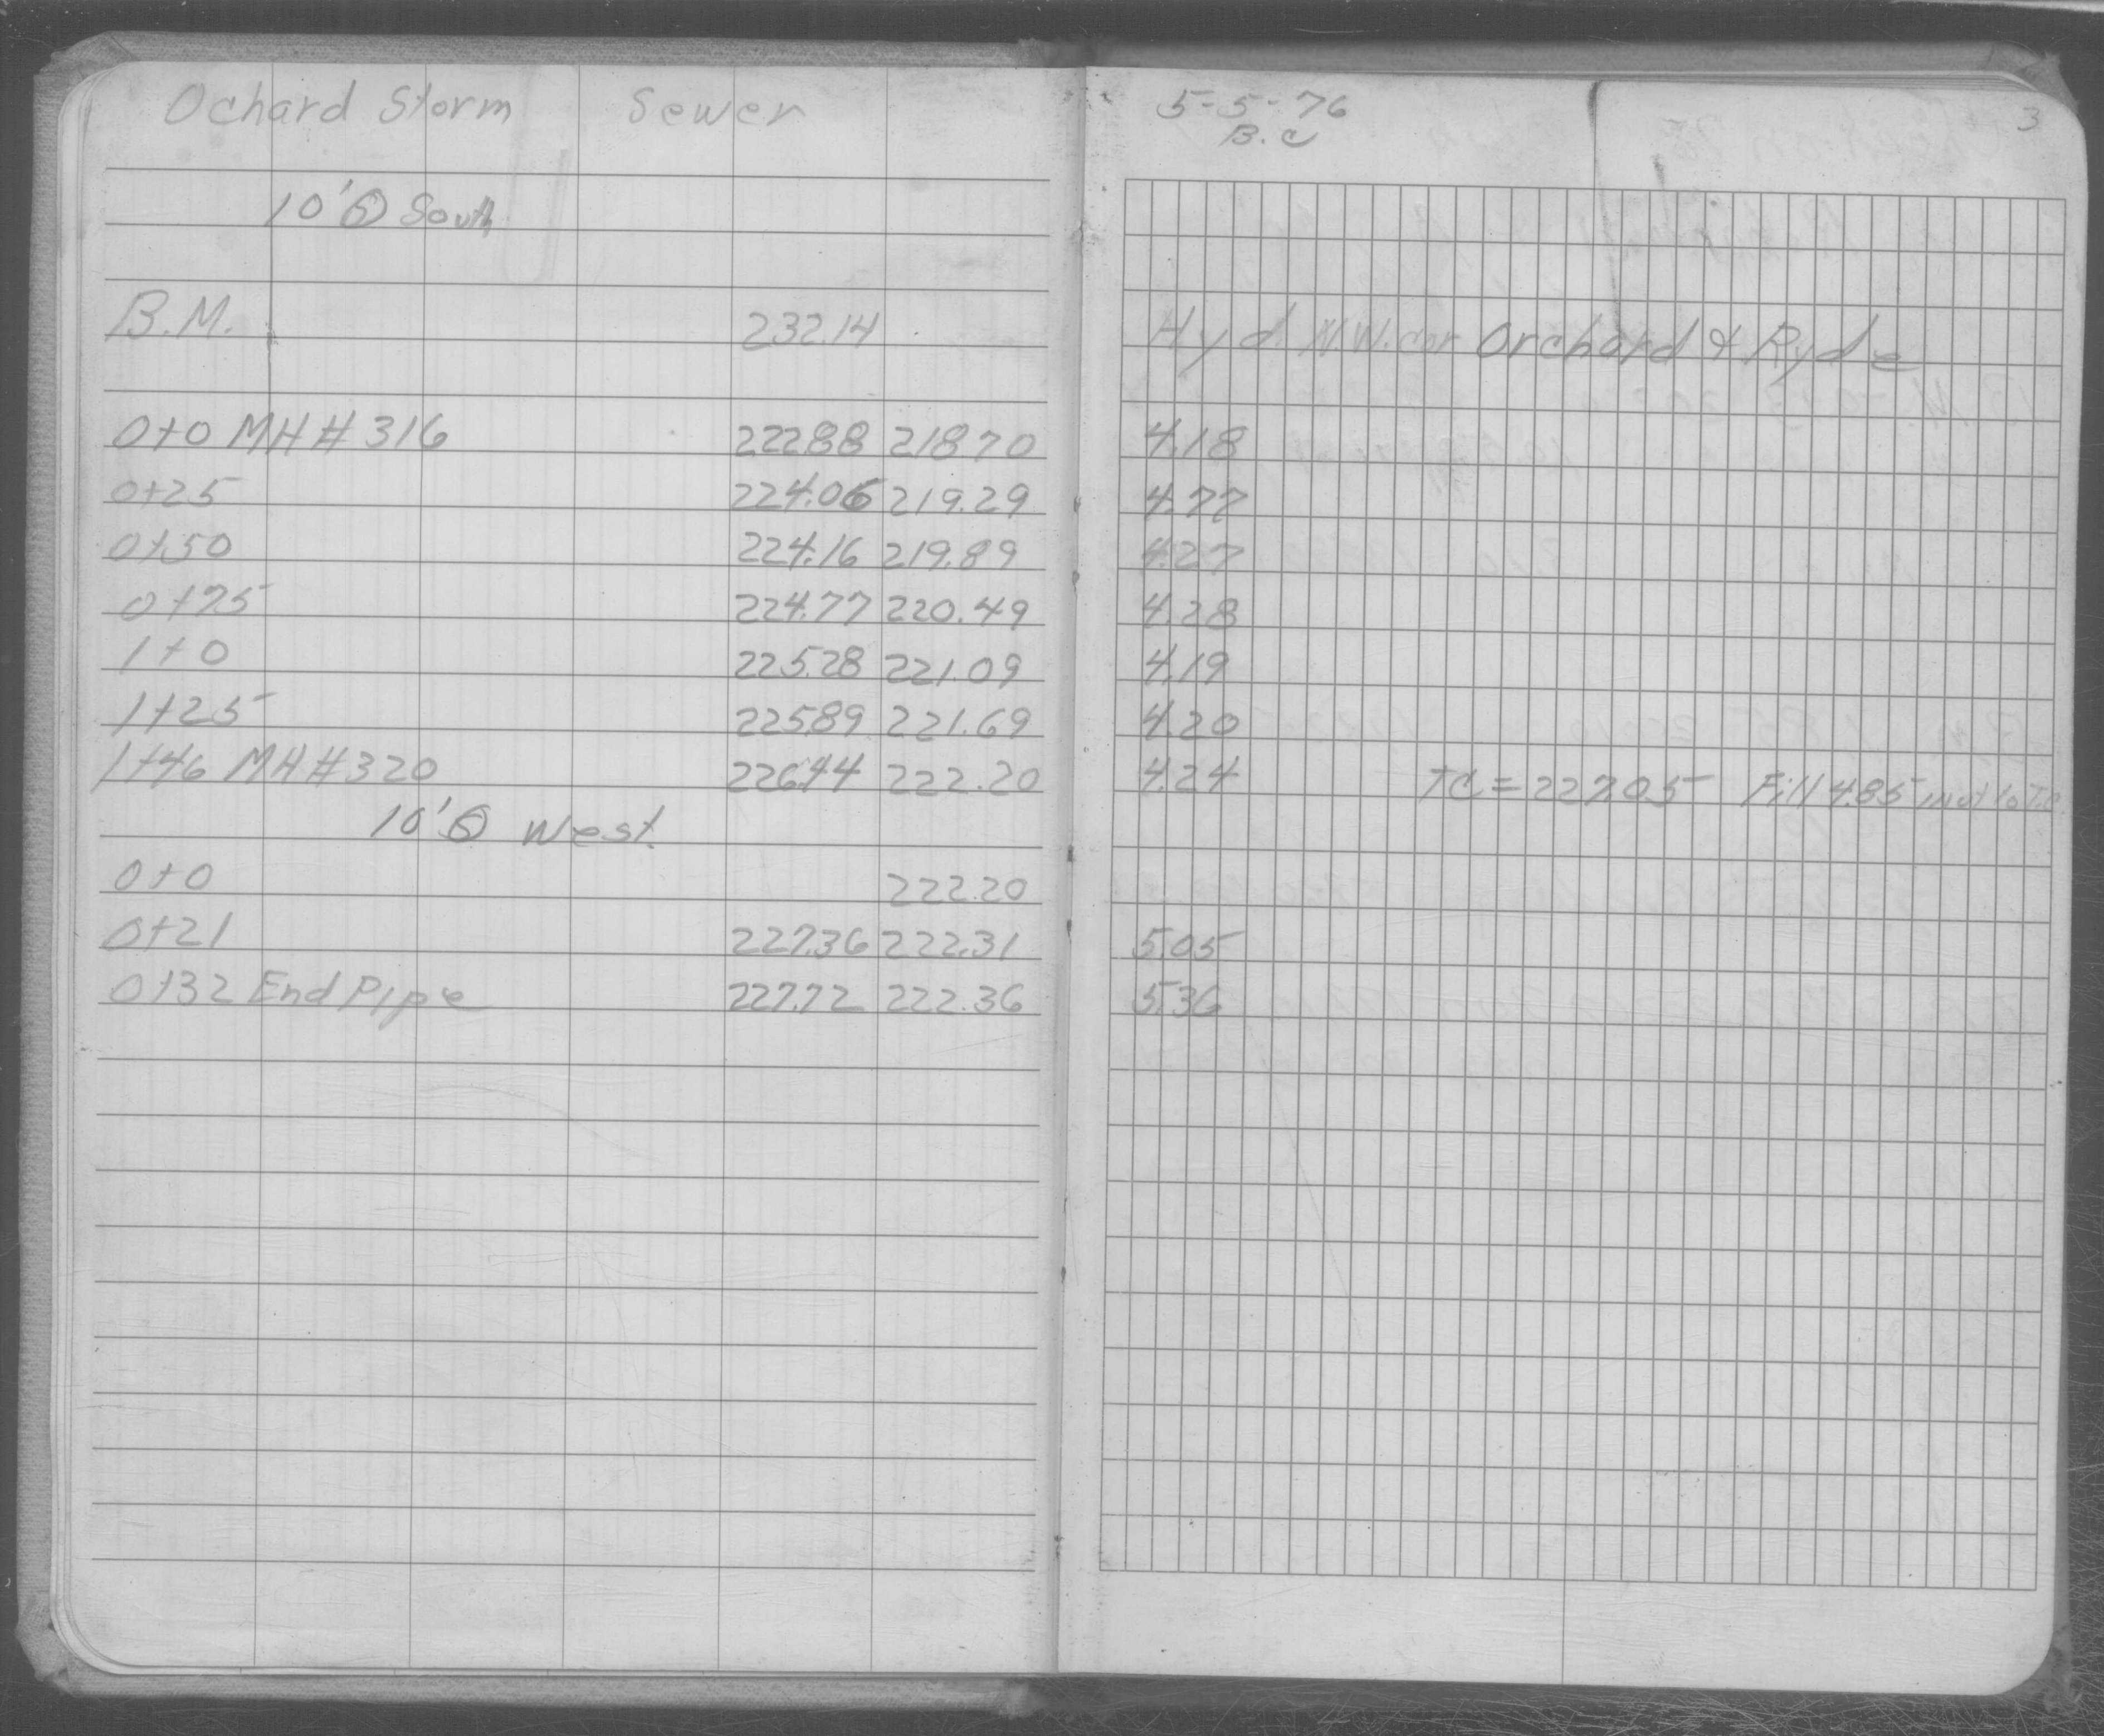 Ochard Storm Sewer
10' South
B.M. 232.14
0+0 MH #316 222.88 218.70
0+25 224.06 219.29
0+50 224.16 219.89
0+75 224.77 220.49
1+0 225.28 221.09
1+25 225.89 221.69
1+46 MH #320 226.44 222.20
10' West
0+0 222.20
0+21 227.36 222.31
0+32 End Pipe 227.72 222.36
5-5-76
B.C
3
Hyd. N.W. cor Orchard & Ryde
4.18
4.77
4.27
4.28
4.19
4.20
4.24 TC = 227.05 Fill 4.85 invt to T.C
5.05
5.36